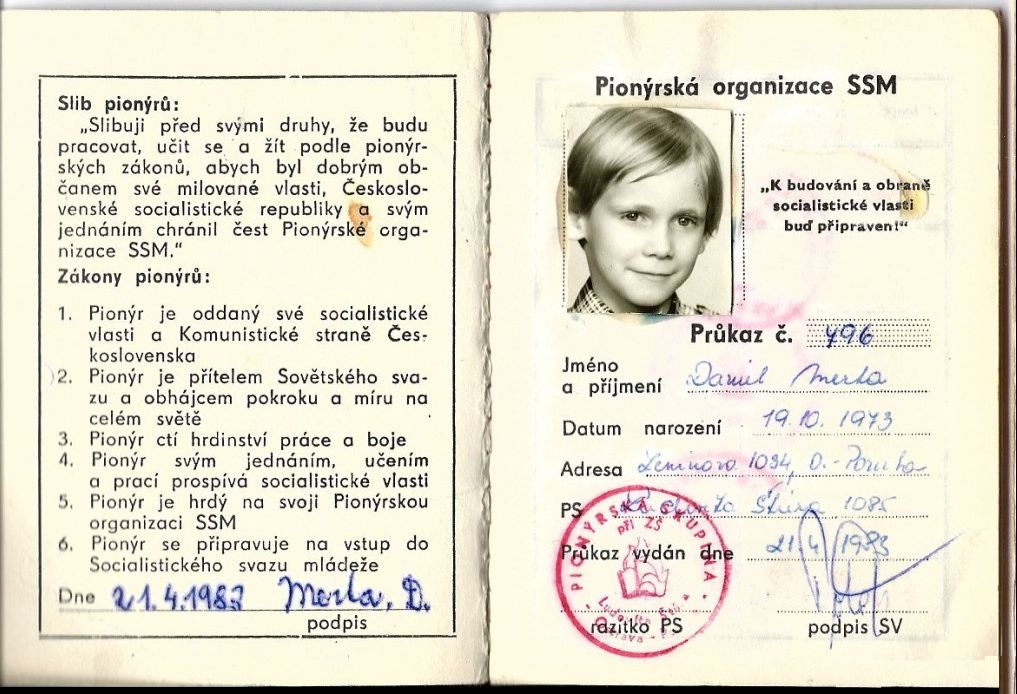 Slib pionýrů:
„Slibuji před svými druhy, že budu
pracovat, učit se a žít podle pionýr-
ských zákonů, abych byl dobrým ob-
čanem své milované vlasti, Českoslo-
venské socialistické republiky a svým
jednáním chránil čest Pionýrské orga-
nizace SSM."
Zákony pionýrů:
1. Pionýr je oddaný své socialistické
vlasti a Komunistické straně Čes-
koslovenska
2. Pionýr je přítelem Sovětského sva-
zu a obhájcem pokroku a míru na
celém světě
3. Pionýr ctí hrdinství práce a boje
4. Pionýr svým jednáním, učením
a prací prospívá socialistické vlasti
5. Pionýr je hrdý na svoji Pionýrskou
organizaci SSM
6. Pionýr se připravuje na vstup do
Socialistického svazu mládeže
Dne 21.4.1983 Merta, D.
podpis
Pionýrská organizace SSM
„K budování a obraně
socialistické vlasti
buď připraven!"
Průkaz č. 496
Jméno
a příjmení Daniel Merta
Datum narození 19.10.1973
Adresa Leninova 1034, O.-Poruba
PS Ludovíta Štúra 1085
Průkaz vydán dne 21.4 1983
razítko PS
podpis SV
PIONÝRSKÁ SKUPINA
při ZŠ
Ludovíta
Ostrava